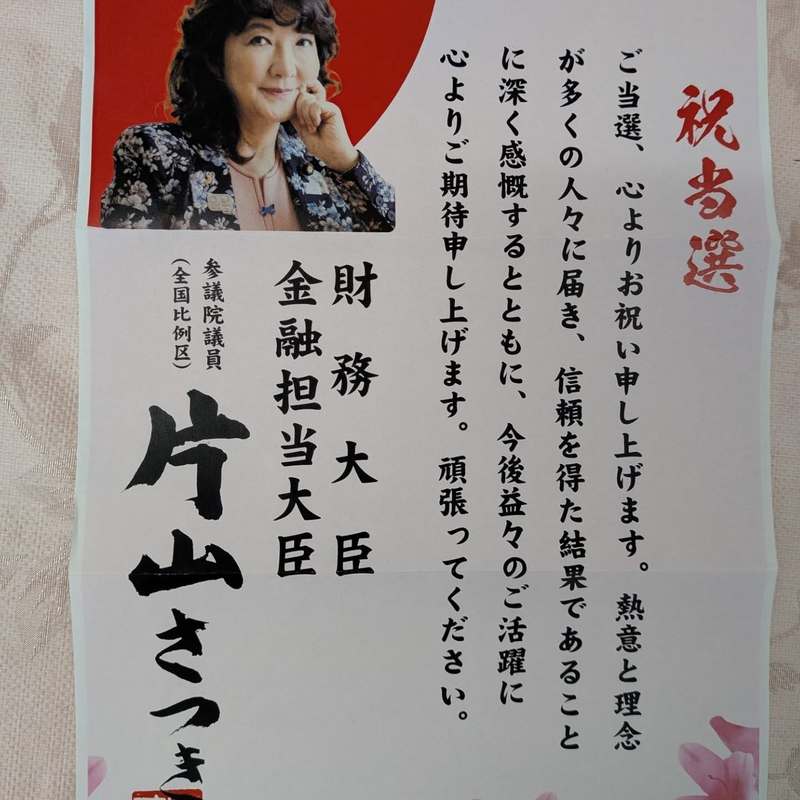 祝当選
ご当選、心よりお祝い申し上げます。熱意と理念
が多くの人々に届き、信頼を得た結果であること
に深く感慨するとともに、今後益々のご活躍に
心よりご期待申し上げます。頑張ってください。
財務大臣
金融担当大臣
参議院議員
(全国比例区)
片山さつき